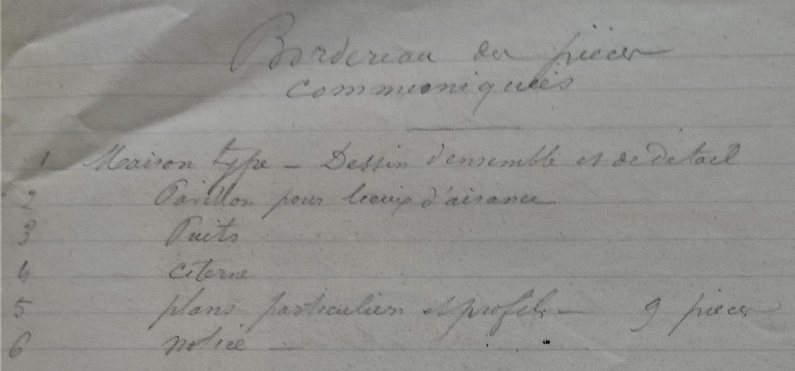 Bordereau des pièces
communiquées
1 Maison type - Dessin d'ensemble et de détail
2 Pavillon pour lieux d'aisance
3 Puits
4 citerne
5 plans particuliers et profils - 9 pièces
6 notice -